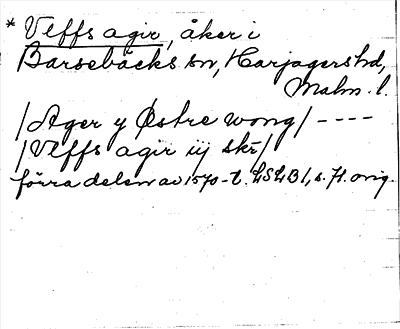 * Vlffs agir, åker i
Barsebäcks sn, Harjagers hd,
Malm. l.
/Ager y Østre wong/ ----
/Vlffs agir iij skr/
förra delen av 1570-t. LSLB 1, s. 71. orig.